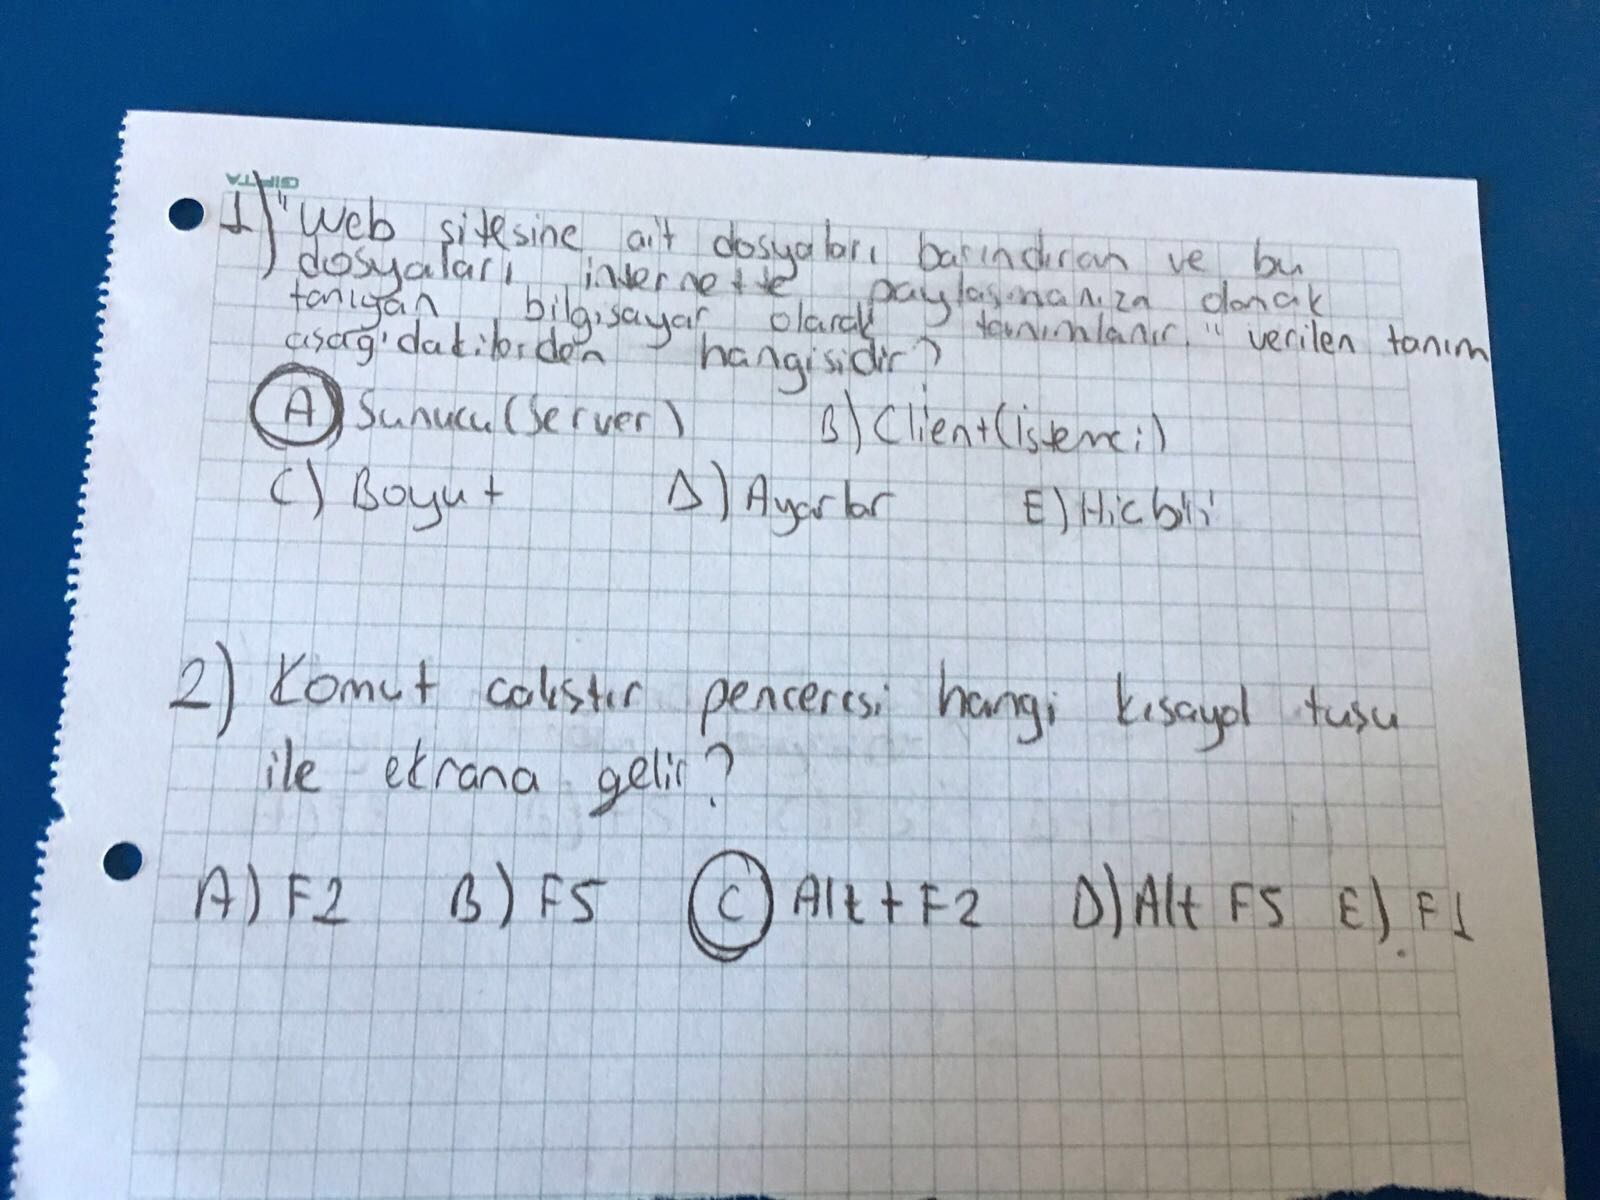 GIPTA
1) "Web sitesine ait dosyaları barındıran ve bu
dosyaları internette paylaşmanıza olanak
tanıyan bilgisayar olarak tanımlanır." verilen tanım
aşağıdakilerden hangisidir?
A) Sunucu (Server) B) Client (istemci)
C) Boyut D) Ayarlar E) Hicbiri
2) Komut calıstır penceresi hangi kısayol tusu
ile ekrana gelir?
A) F2 B) F5 C) Alt + F2 D) Alt F5 E) F1